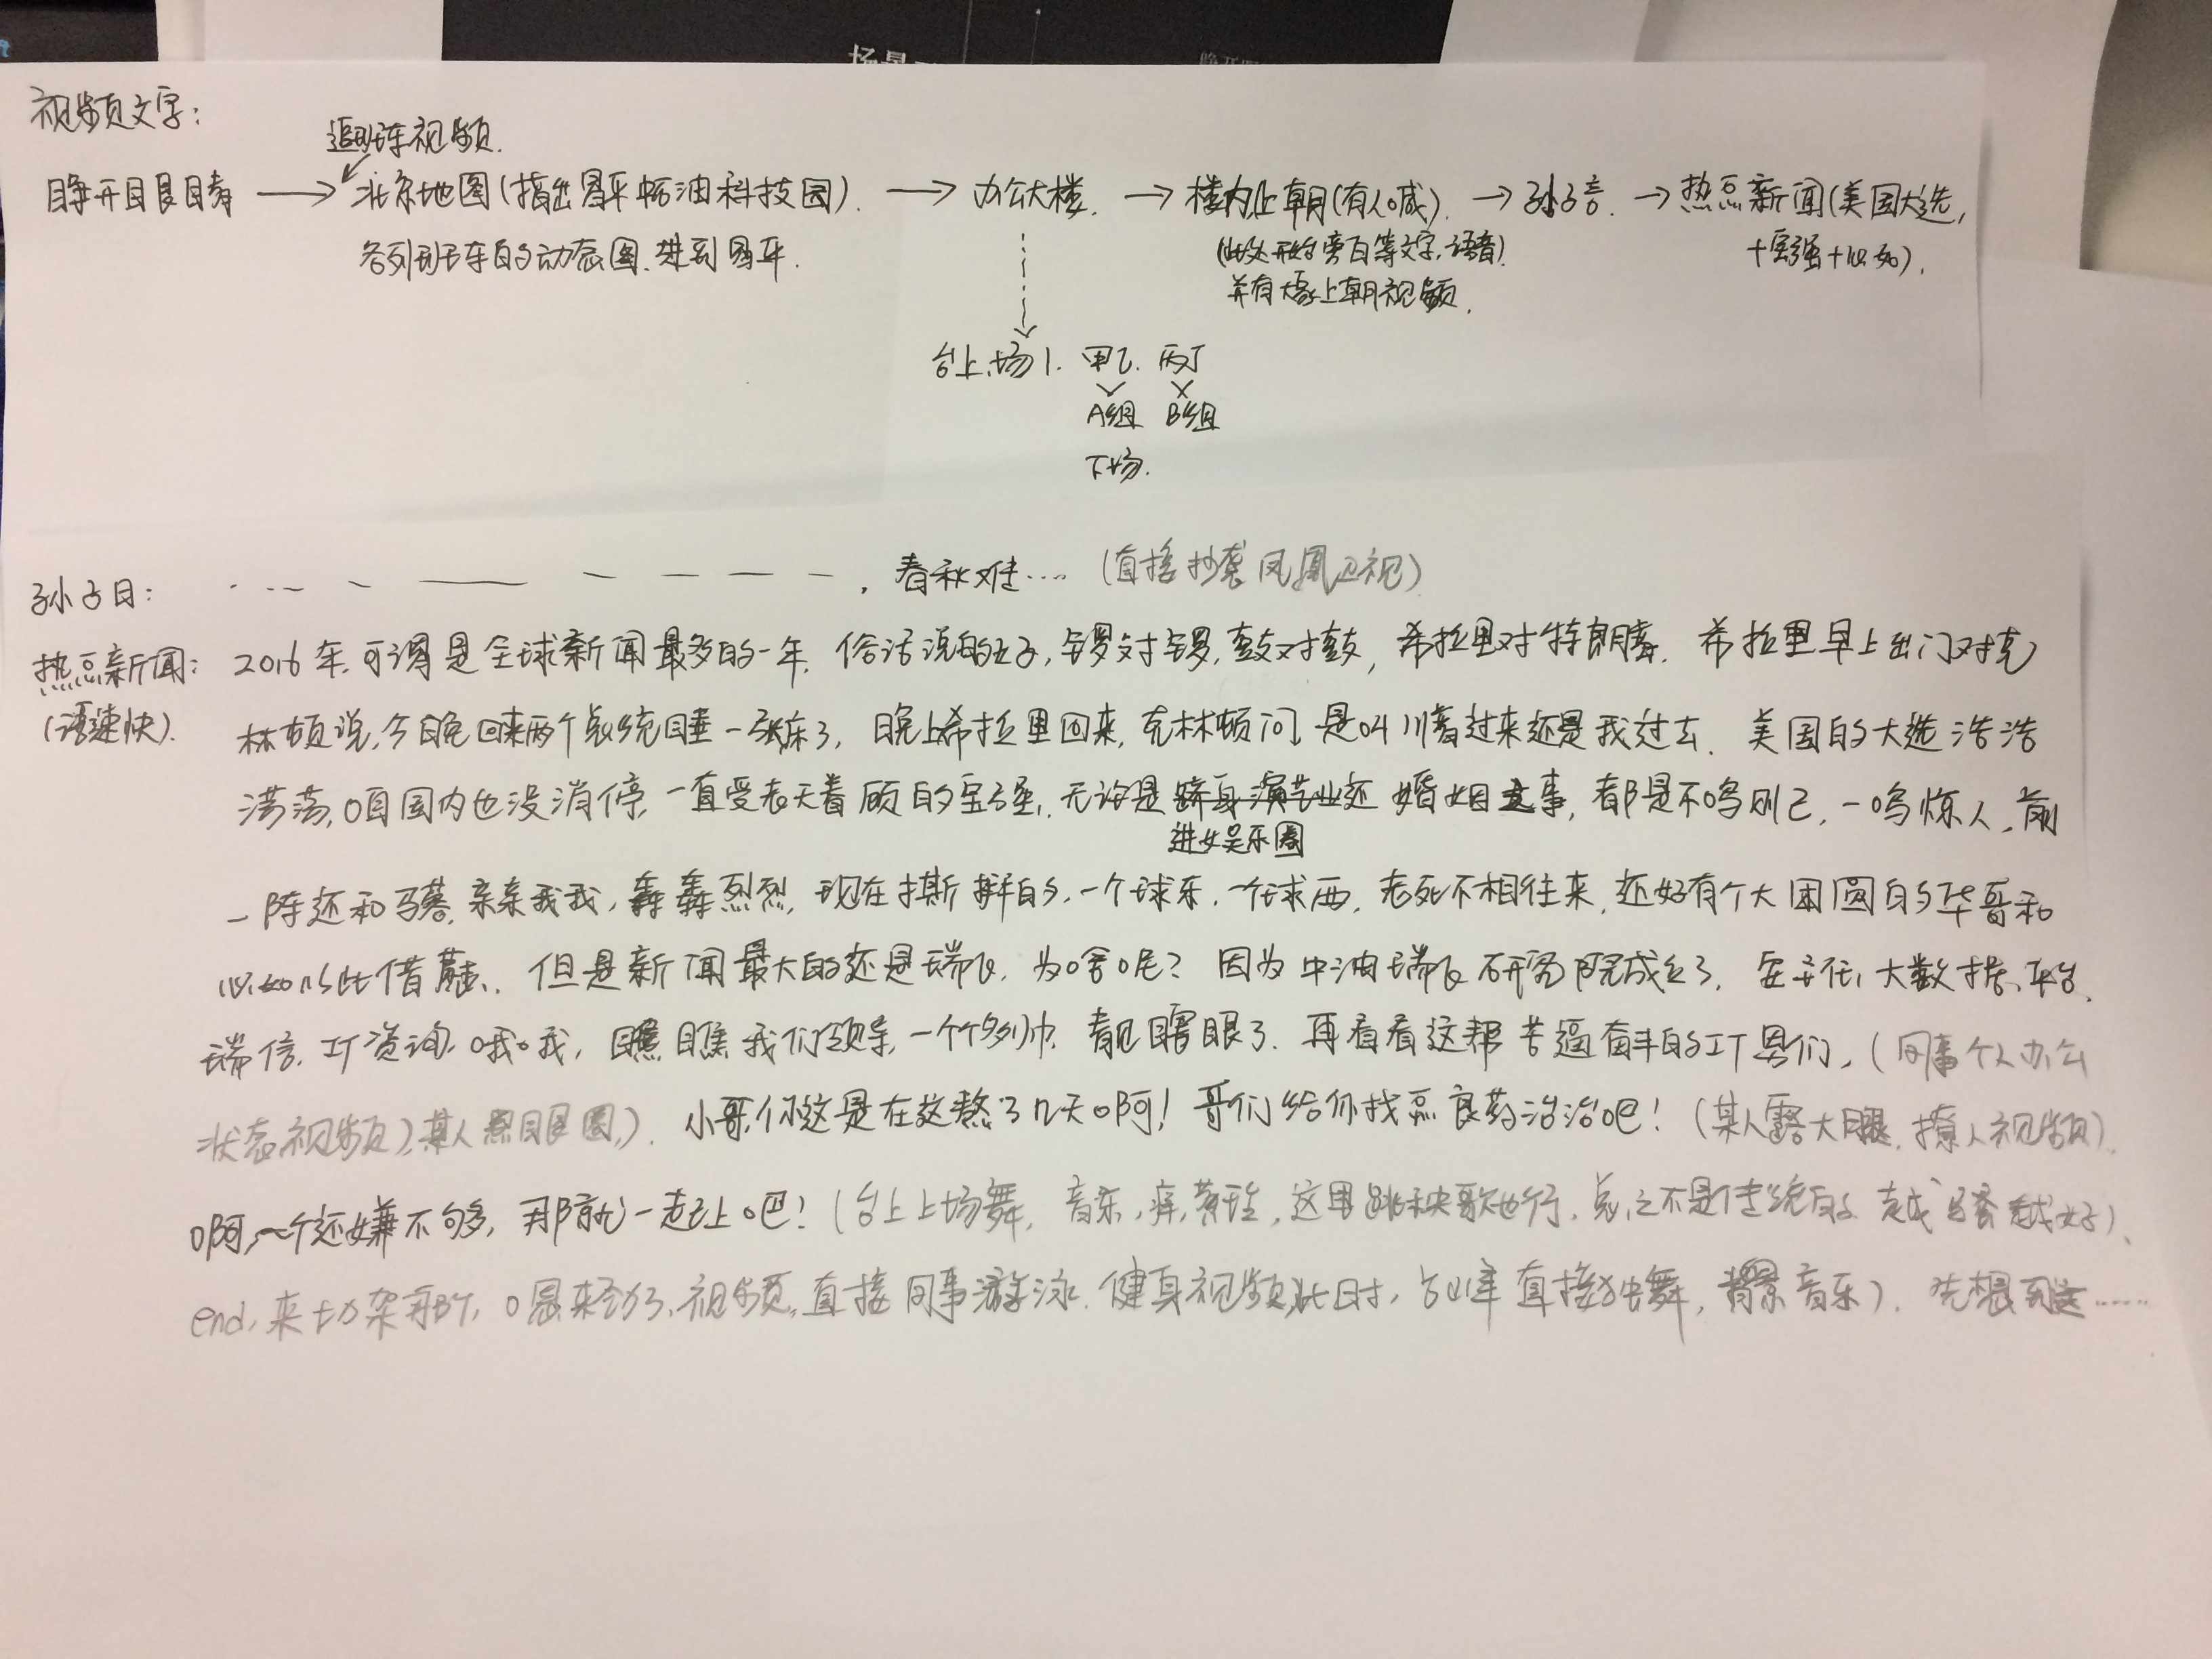 场景
视频文字：
追班车视频.
睁开眼睛 → 北京地图(指出昌平中石油科技园). → 办公大楼. → 楼内上朝(有人喊). → 孙子言. → 热点新闻(美国大选,
各列班车的动态图.进到昌平.
(此处开始旁白等文字,语音)
+宝强+
并有大家上朝视频.
台上:场1. 甲乙. 丙丁
A组 B组
下场.
孙子曰: ，春秋难…. (直接抄袭凤凰卫视)
热点新闻: 2016年,可谓是全球新闻最多的一年, 俗话说的好,锣对锣,鼓对鼓,希拉里对特朗普. 希拉里早上出门对克
(语速快). 林顿说,今晚回来两个总统睡一张床了, 晚上希拉里回来,克林顿问,是叫川普过来还是我过去. 美国的大选浩浩
荡荡,咱国内也没消停,一直受老天着顾的宝强,无论是跻身演艺业还婚姻这事,都是不鸣则已,一鸣惊人,前
进娱乐圈
一阵还和马蓉,亲亲我我,轰轰烈烈,现在撕拼的,一个球东,一个球西,老死不相往来,还好有个大团圆的华哥和
此借 但是新闻最大的还是瑞飞,为啥呢? 因为中油瑞飞研究院成立了, 大数据、平台、
瑞信、IT资询,哦哦,瞧瞧我们领导,一个个多帅, 眼了. 再看看这帮苦逼奋斗的IT男们,(同事个人办公
状态视频)(某人黑眼圈,). 小哥,你这是在这熬了几天啊! 哥们给你找点良药治治吧! (某人露大腿,撩人视频).
啊,一个还嫌不够多, 那就一起上吧! (台上上场舞, 音乐, 这里跳秧歌也行,总之不是传统的 越骚越好)、
end, 来劲了,视频,直接同事游泳、健身视频,此时, 直接独舞,背景音乐). 先想到这……